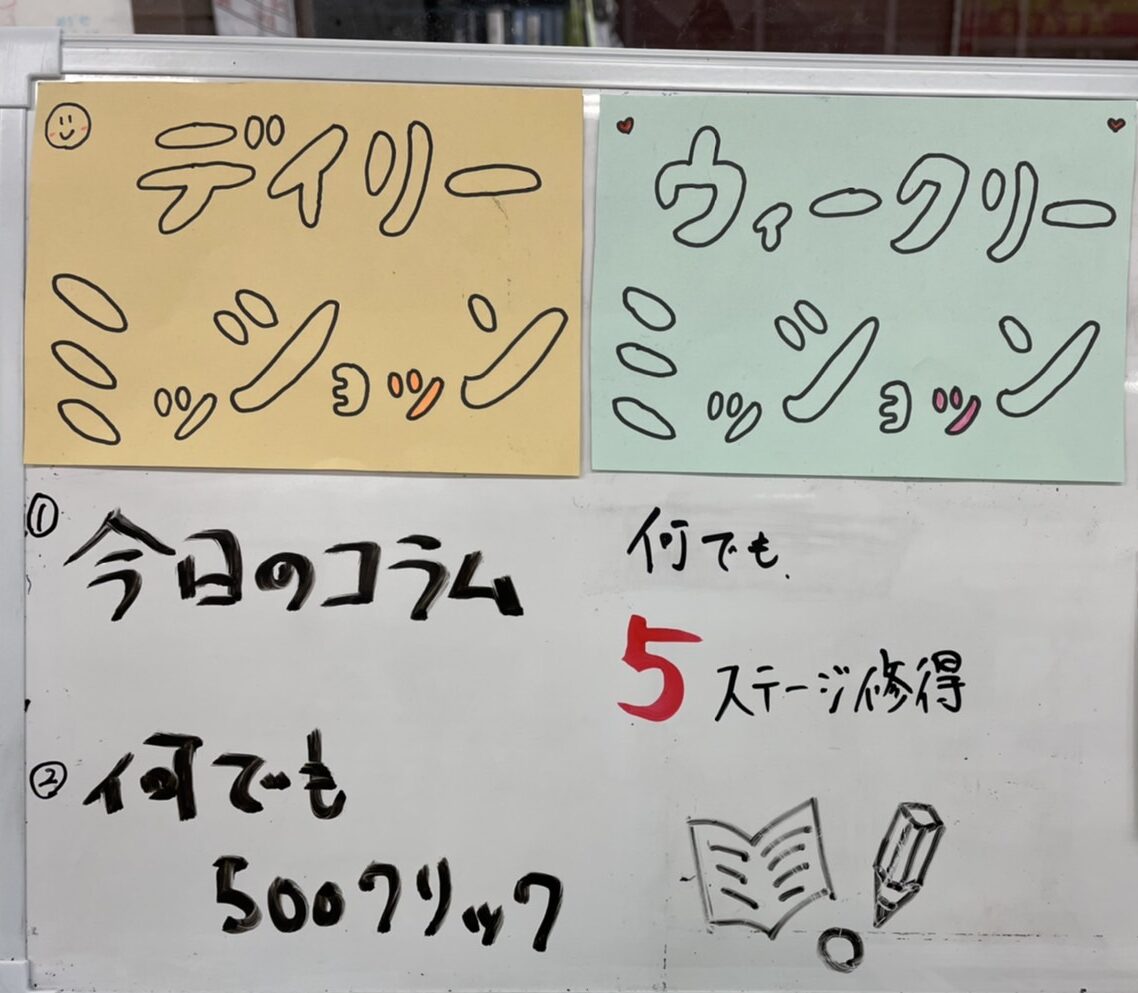 デイリー
ミッショッン
ウィークリー
ミッショッン
① 今日のコラム
② 何でも
500クリック
何でも
5ステージ修得